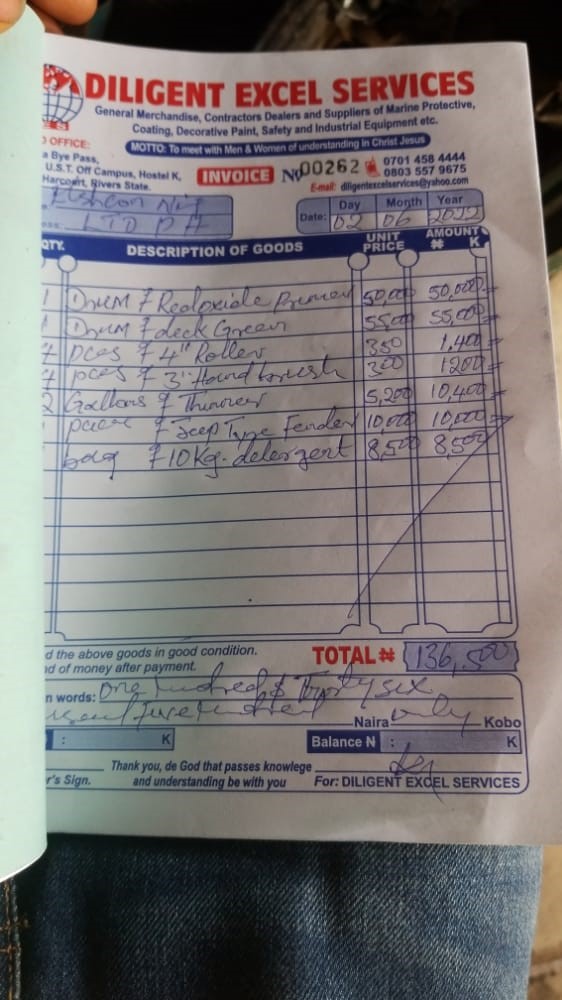 DILIGENT EXCEL SERVICES
General Merchandise, Contractors Dealers and Suppliers of Marine Protective,
Coating, Decorative Paint, Safety and Industrial Equipment etc.
MOTTO: To meet with Men & Women of understanding in Christ Jesus
OFFICE:
a Bye Pass,
U.S.T. Off Campus, Hostel K,
Harcourt, Rivers State.
INVOICE № 00262
0701 458 4444
0803 557 9675
E-mail: diligentexcelservices@yahoo.com
LTD PH
Day Month Year
Date: 02 06 2022
QTY. DESCRIPTION OF GOODS UNIT PRICE AMOUNT ₦ K
1 Drum of Redoxide Primer 50,000 50,000=
1 Drum of deck Green 55,000 55,000=
4 pces of 4" Roller 350 1,400=
4 pces of 3" Hand brush 300 1200=
2 Gallons of Thinner 5,200 10,400=
of Jeep Type Fender 10,000 10,000=
bag of 10kg. detergent 8,500 8,500
d the above goods in good condition.
d of money after payment.
TOTAL ₦ 136,500
n words: One hundred & Thirty six
five hundred Naira only Kobo
: K Balance N : K
Thank you, de God that passes knowlege
and understanding be with you
r's Sign.
For: DILIGENT EXCEL SERVICES